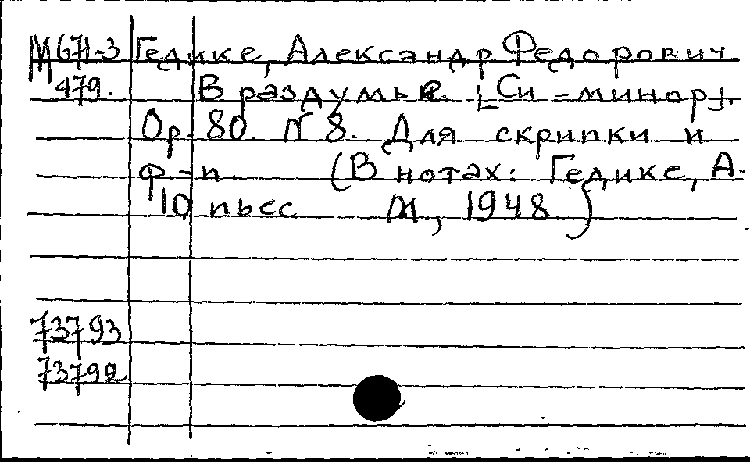 М671-3 Гедике, Александр Федорович
479. В раздумье. [Си-минор].
Ор. 80. N 8. Для скрипки и
ф-п (В нотах: Гедике, А.
10 пьес М, 1948)
73793
73792